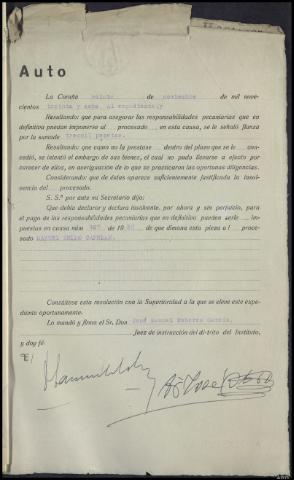 Auto
La Coruña veinte de noviembre de mil nove-
cientos treinta y seis.
Resultando: que para asegurar las responsabilidades pecuniarias que en
definitiva puedan imponerse al procesado en esta causa, se le señaló fianza
por la suma de tresmil pesetas.
Resultando: que como no la prestase dentro del plazo que se le con-
cedió, se intentó el embargo de sus bienes, el cual no pudo llevarse a efecto por
carecer de ellos, en averiguación de lo que se practicaron las oportunas diligencias.
Considerando: que de éstas aparece suficientemente justificada la insol-
vencia del procesado.
S. Sª por ante su Secretario dijo:
Que debía declarar y declara insolvente, por ahora y sin perjuicio, para
el pago de las responsabilidades pecuniarias que en definitiva puedan serle im-
puestas en causa núm. de 19 de que dimana esta pieza al proce-
sado MANUEL
Consúltese esta resolución con la Superioridad a la que se eleve este expe-
diente oportunamente.
Lo mandó y firma el Sr. Don José Manuel
Juez de instrucción del distrito del Instituto,
y doy fé.
E/